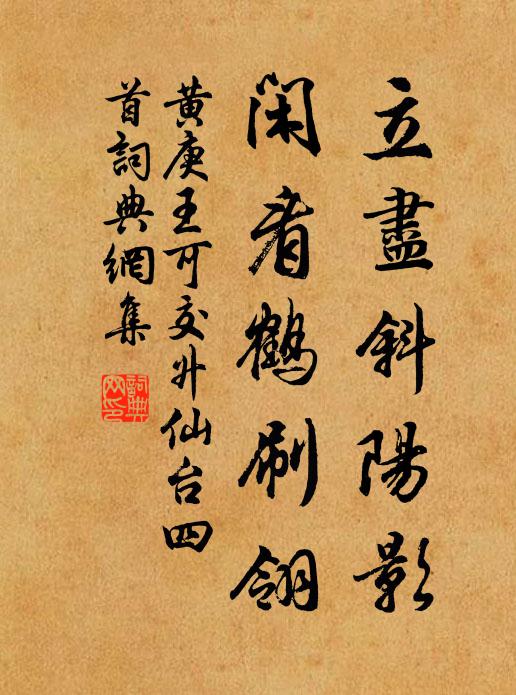 立盡斜陽影
閑看鶴刷翎
黃庚王可交升仙台四
首詞典網集
詞典
网印